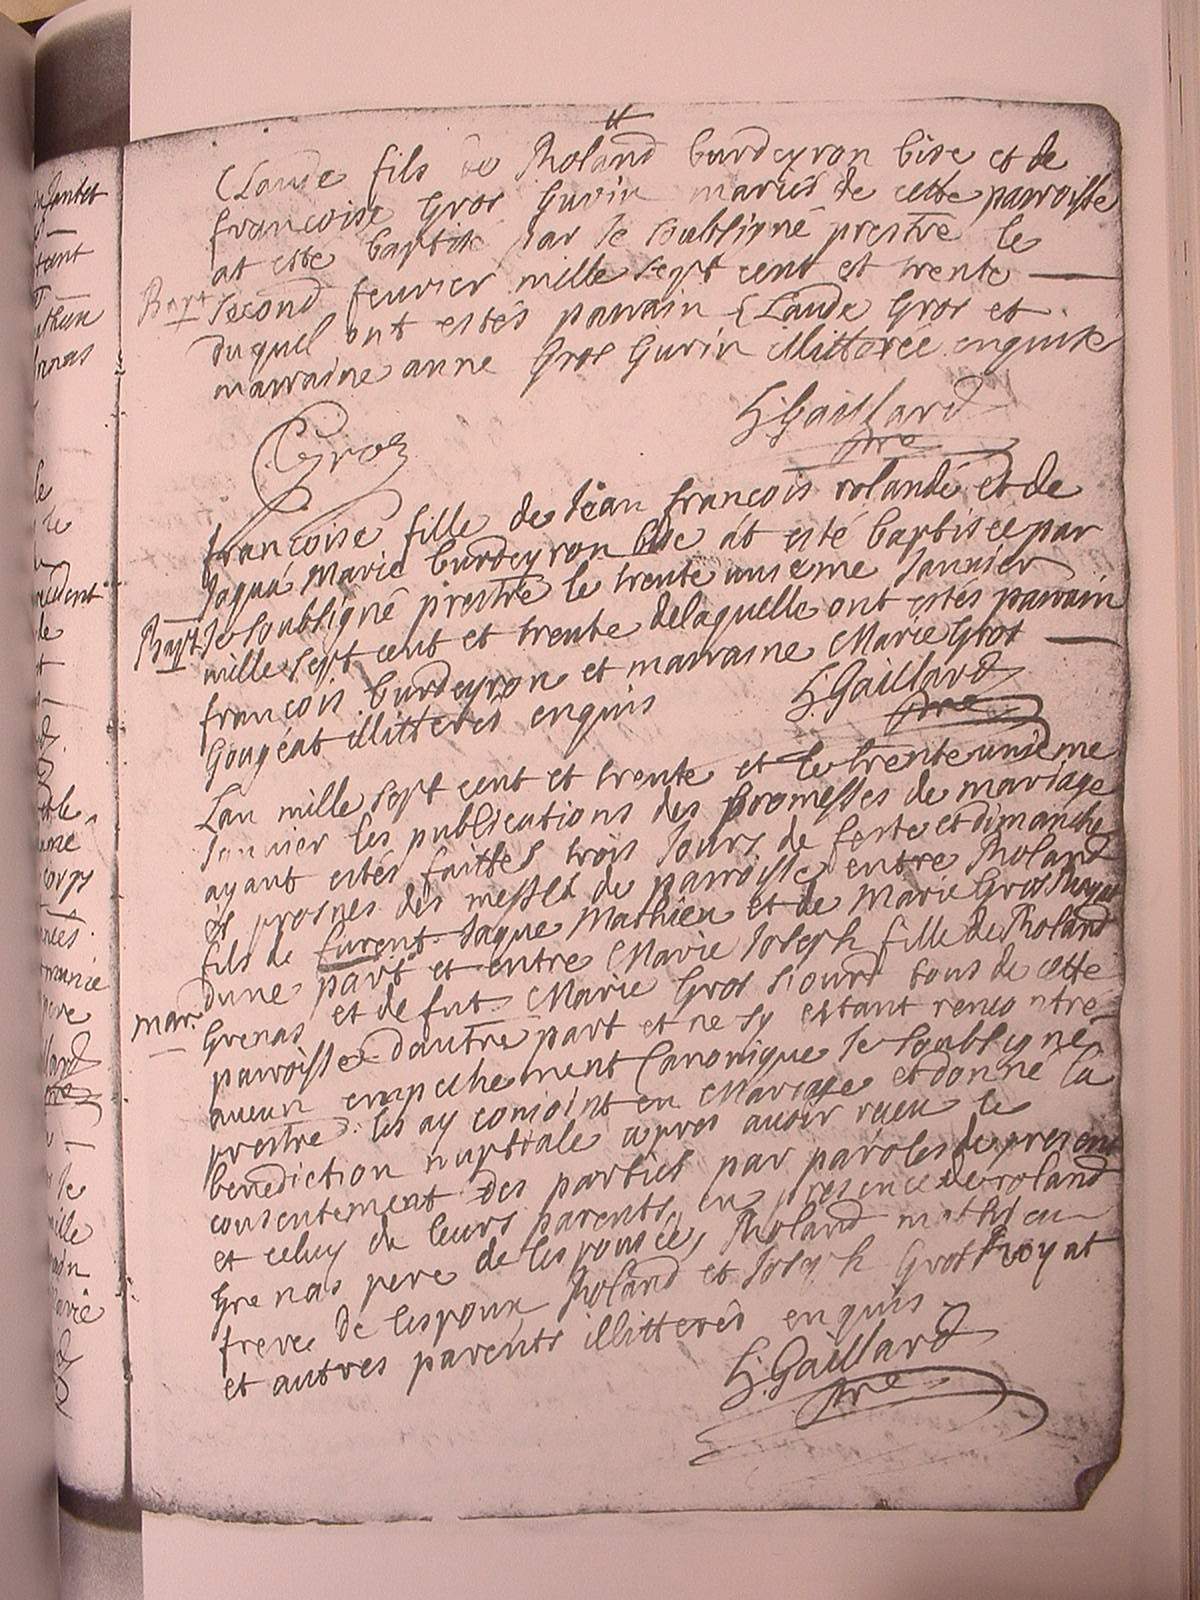 Claude fils de Roland burdeyron bise et de
francoise Gros Gurin mariés de cette parroisse
at esté baptisé par le soubsigné prestre le
Bapt second feuvrier mille sept cent et trente
duquel ont estés parrain Claude Gros et
marraine anne Gros Gurin illitterée enquise
CGros
h Gaillard
pre
francoise fille de Jean francois rolande et de
Jaqua Marie burdeyron bise at esté baptisee par
Bapt le soubsigné prestre le trente unieme Janvier
mille sept cent et trente delaquelle ont estés parrain
francois burdeyron et marraine Marie Gros
Gougeat illitterés enquis
h Gaillard
pre
Lan mille sept cent et trente et le trente unieme
Janvier les publications des promesses de mariage
ayant estés faittes trois Jours de feste et dimanche
es prosnes des messes de parroisse entre Roland
fils de furent Jaque Mathieu et de Marie Gros
dune part et entre Marie Joseph fille de Roland
mar. Grenas et de fut Marie Gros tous de cette
parroisse dautre part et ne sy estant rencontré
aucun empechement Canonique le soubsigné
prestre les ay conioint en Mariage et donné la
benediction nuptiale apres avoir receu le
consentement des parties par paroles de present
et celuy de leurs parents en presence de roland
Grenas pere de lespouse, Roland mathieu
frere de lespoux Roland et Joseph Gros Royat
et autres parents illitterés enquis
h Gaillard
pre